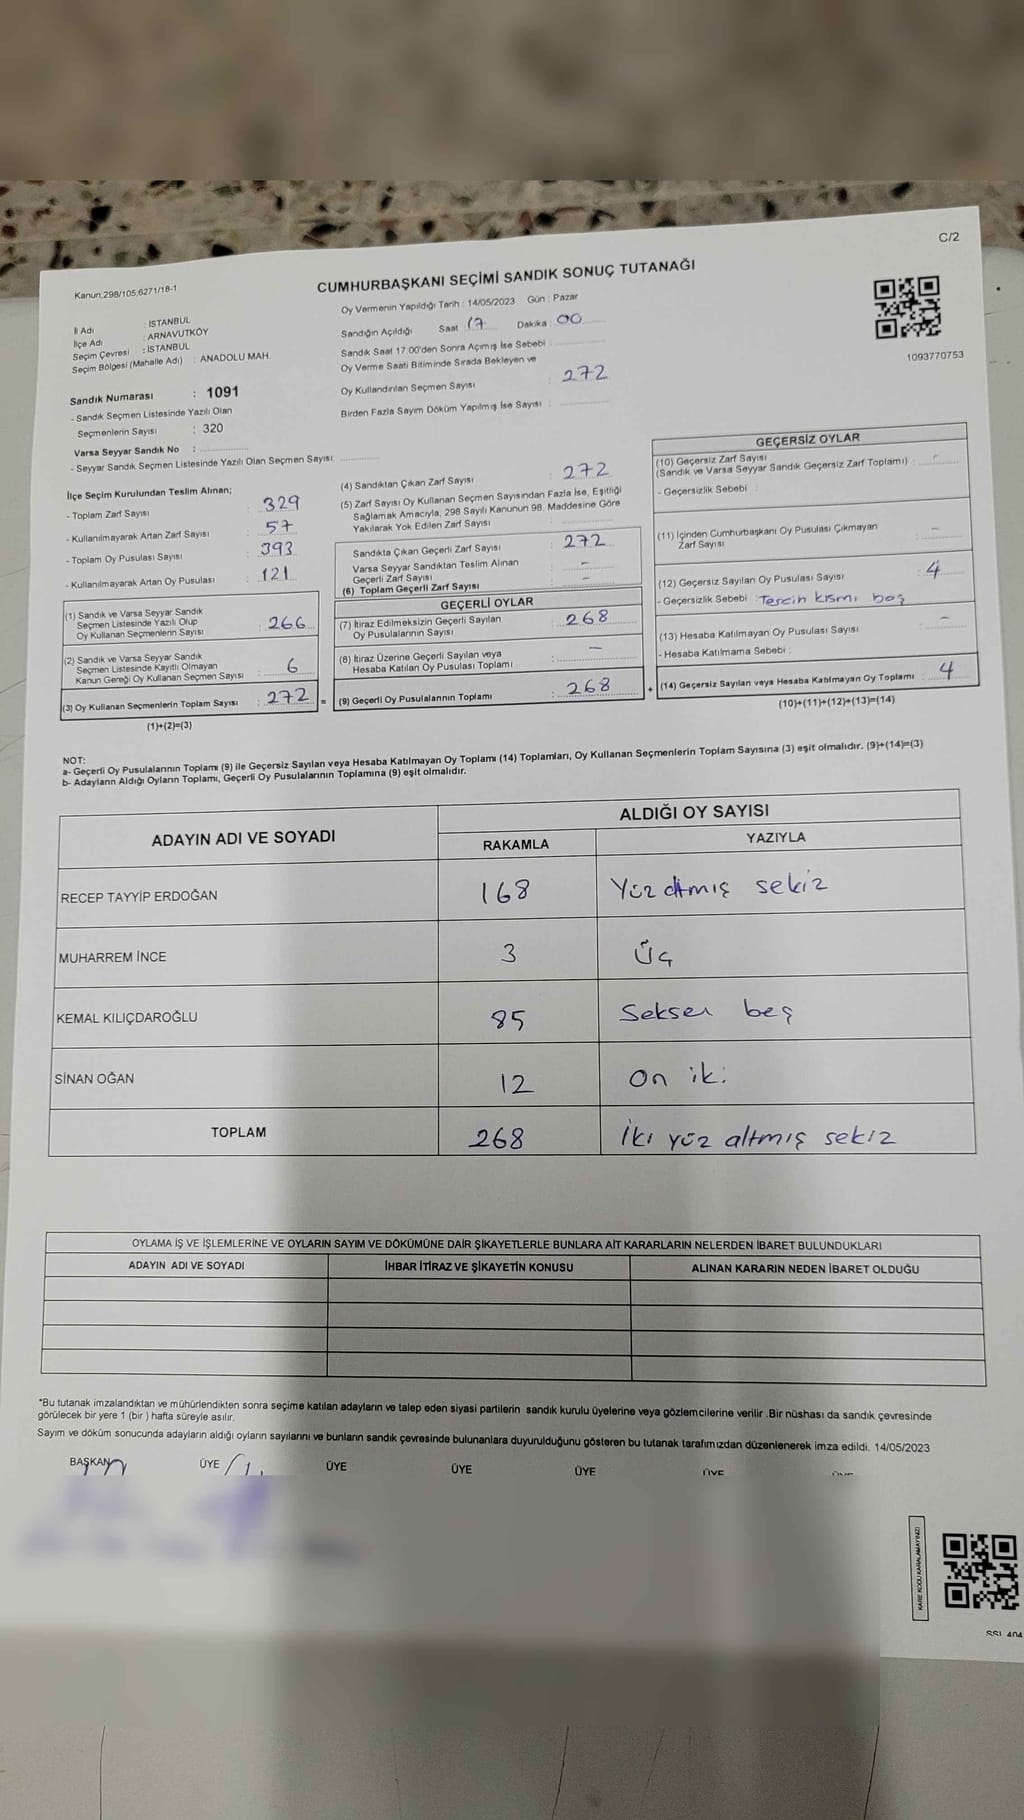 C/2
Kanun;298/105;6271/18-1
CUMHURBAŞKANI SEÇİMİ SANDIK SONUÇ TUTANAĞI
İl Adı : İSTANBUL
İlçe Adı : ARNAVUTKÖY
Seçim Çevresi : İSTANBUL
Seçim Bölgesi (Mahalle Adı) : ANADOLU MAH.
Sandık Numarası : 1091
- Sandık Seçmen Listesinde Yazılı Olan
Seçmenlerin Sayısı : 320
Varsa Seyyar Sandık No :
- Seyyar Sandık Seçmen Listesinde Yazılı Olan Seçmen Sayısı:
Oy Vermenin Yapıldığı Tarih : 14/05/2023 Gün : Pazar
Sandığın Açıldığı Saat 17 Dakika : 00
Sandık Saat 17.00'den Sonra Açımış İse Sebebi :
Oy Verme Saati Bitiminde Sırada Bekleyen ve
Oy Kullandırılan Seçmen Sayısı : 272
Birden Fazla Sayım Döküm Yapılmış İse Sayısı :
1093770753
İlçe Seçim Kurulundan Teslim Alınan;
- Toplam Zarf Sayısı : 329
- Kullanılmayarak Artan Zarf Sayısı : 57
- Toplam Oy Pusulası Sayısı : 393
- Kullanılmayarak Artan Oy Pusulası : 121
(1) Sandık ve Varsa Seyyar Sandık
Seçmen Listesinde Yazılı Olup
Oy Kullanan Seçmenlerin Sayısı : 266
(2) Sandık ve Varsa Seyyar Sandık
Seçmen Listesinde Kayıtlı Olmayan
Kanun Gereği Oy Kullanan Seçmen Sayısı : 6
(3) Oy Kullanan Seçmenlerin Toplam Sayısı : 272 =
(1)+(2)=(3)
(4) Sandıktan Çıkan Zarf Sayısı : 272
(5) Zarf Sayısı Oy Kullanan Seçmen Sayısından Fazla İse, Eşitliği
Sağlamak Amacıyla; 298 Sayılı Kanunun 98. Maddesine Göre
Yakılarak Yok Edilen Zarf Sayısı :
Sandıkta Çıkan Geçerli Zarf Sayısı : 272
Varsa Seyyar Sandıktan Teslim Alınan
Geçerli Zarf Sayısı : -
(6) Toplam Geçerli Zarf Sayısı : -
GEÇERLİ OYLAR
(7) İtiraz Edilmeksizin Geçerli Sayılan
Oy Pusulalarının Sayısı : 268
(8) İtiraz Üzerine Geçerli Sayılan veya
Hesaba Katılan Oy Pusulası Toplamı : -
(9) Geçerli Oy Pusulalarının Toplamı : 268 +
GEÇERSİZ OYLAR
(10) Geçersiz Zarf Sayısı
(Sandık ve Varsa Seyyar Sandık Geçersiz Zarf Toplamı) : -
- Geçersizlik Sebebi :
(11) İçinden Cumhurbaşkanı Oy Pusulası Çıkmayan
Zarf Sayısı : -
(12) Geçersiz Sayılan Oy Pusulası Sayısı : 4
- Geçersizlik Sebebi : Tercih kısmı boş
(13) Hesaba Katılmayan Oy Pusulası Sayısı : -
- Hesaba Katılmama Sebebi :
(14) Geçersiz Sayılan veya Hesaba Katılmayan Oy Toplamı : 4
(10)+(11)+(12)+(13)=(14)
NOT:
a- Geçerli Oy Pusulalarının Toplamı (9) ile Geçersiz Sayılan veya Hesaba Katılmayan Oy Toplamı (14) Toplamları, Oy Kullanan Seçmenlerin Toplam Sayısına (3) eşit olmalıdır. (9)+(14)=(3)
b- Adayların Aldığı Oyların Toplamı, Geçerli Oy Pusulalarının Toplamına (9) eşit olmalıdır.
ADAYIN ADI VE SOYADI
ALDIĞI OY SAYISI
RAKAMLA YAZIYLA
RECEP TAYYİP ERDOĞAN 168 Yüz altmış sekiz
MUHARREM İNCE 3 Üç
KEMAL KILIÇDAROĞLU 85 Seksen beş
SİNAN OĞAN 12 On iki
TOPLAM 268 İki yüz altmış sekiz
OYLAMA İŞ VE İŞLEMLERİNE VE OYLARIN SAYIM VE DÖKÜMÜNE DAİR ŞİKAYETLERLE BUNLARA AİT KARARLARIN NELERDEN İBARET BULUNDUKLARI
ADAYIN ADI VE SOYADI İHBAR İTİRAZ VE ŞİKAYETİN KONUSU ALINAN KARARIN NEDEN İBARET OLDUĞU
*Bu tutanak imzalandıktan ve mühürlendikten sonra seçime katılan adayların ve talep eden siyasi partilerin sandık kurulu üyelerine veya gözlemcilerine verilir .Bir nüshası da sandık çevresinde
görülecek bir yere 1 (bir ) hafta süreyle asılır.
Sayım ve döküm sonucunda adayların aldığı oyların sayılarını ve bunların sandık çevresinde bulunanlara duyurulduğunu gösteren bu tutanak tarafımızdan düzenlenerek imza edildi. 14/05/2023
BAŞKAN ÜYE ÜYE ÜYE ÜYE ÜYE
KARE KODU KARALAMAYINIZ!